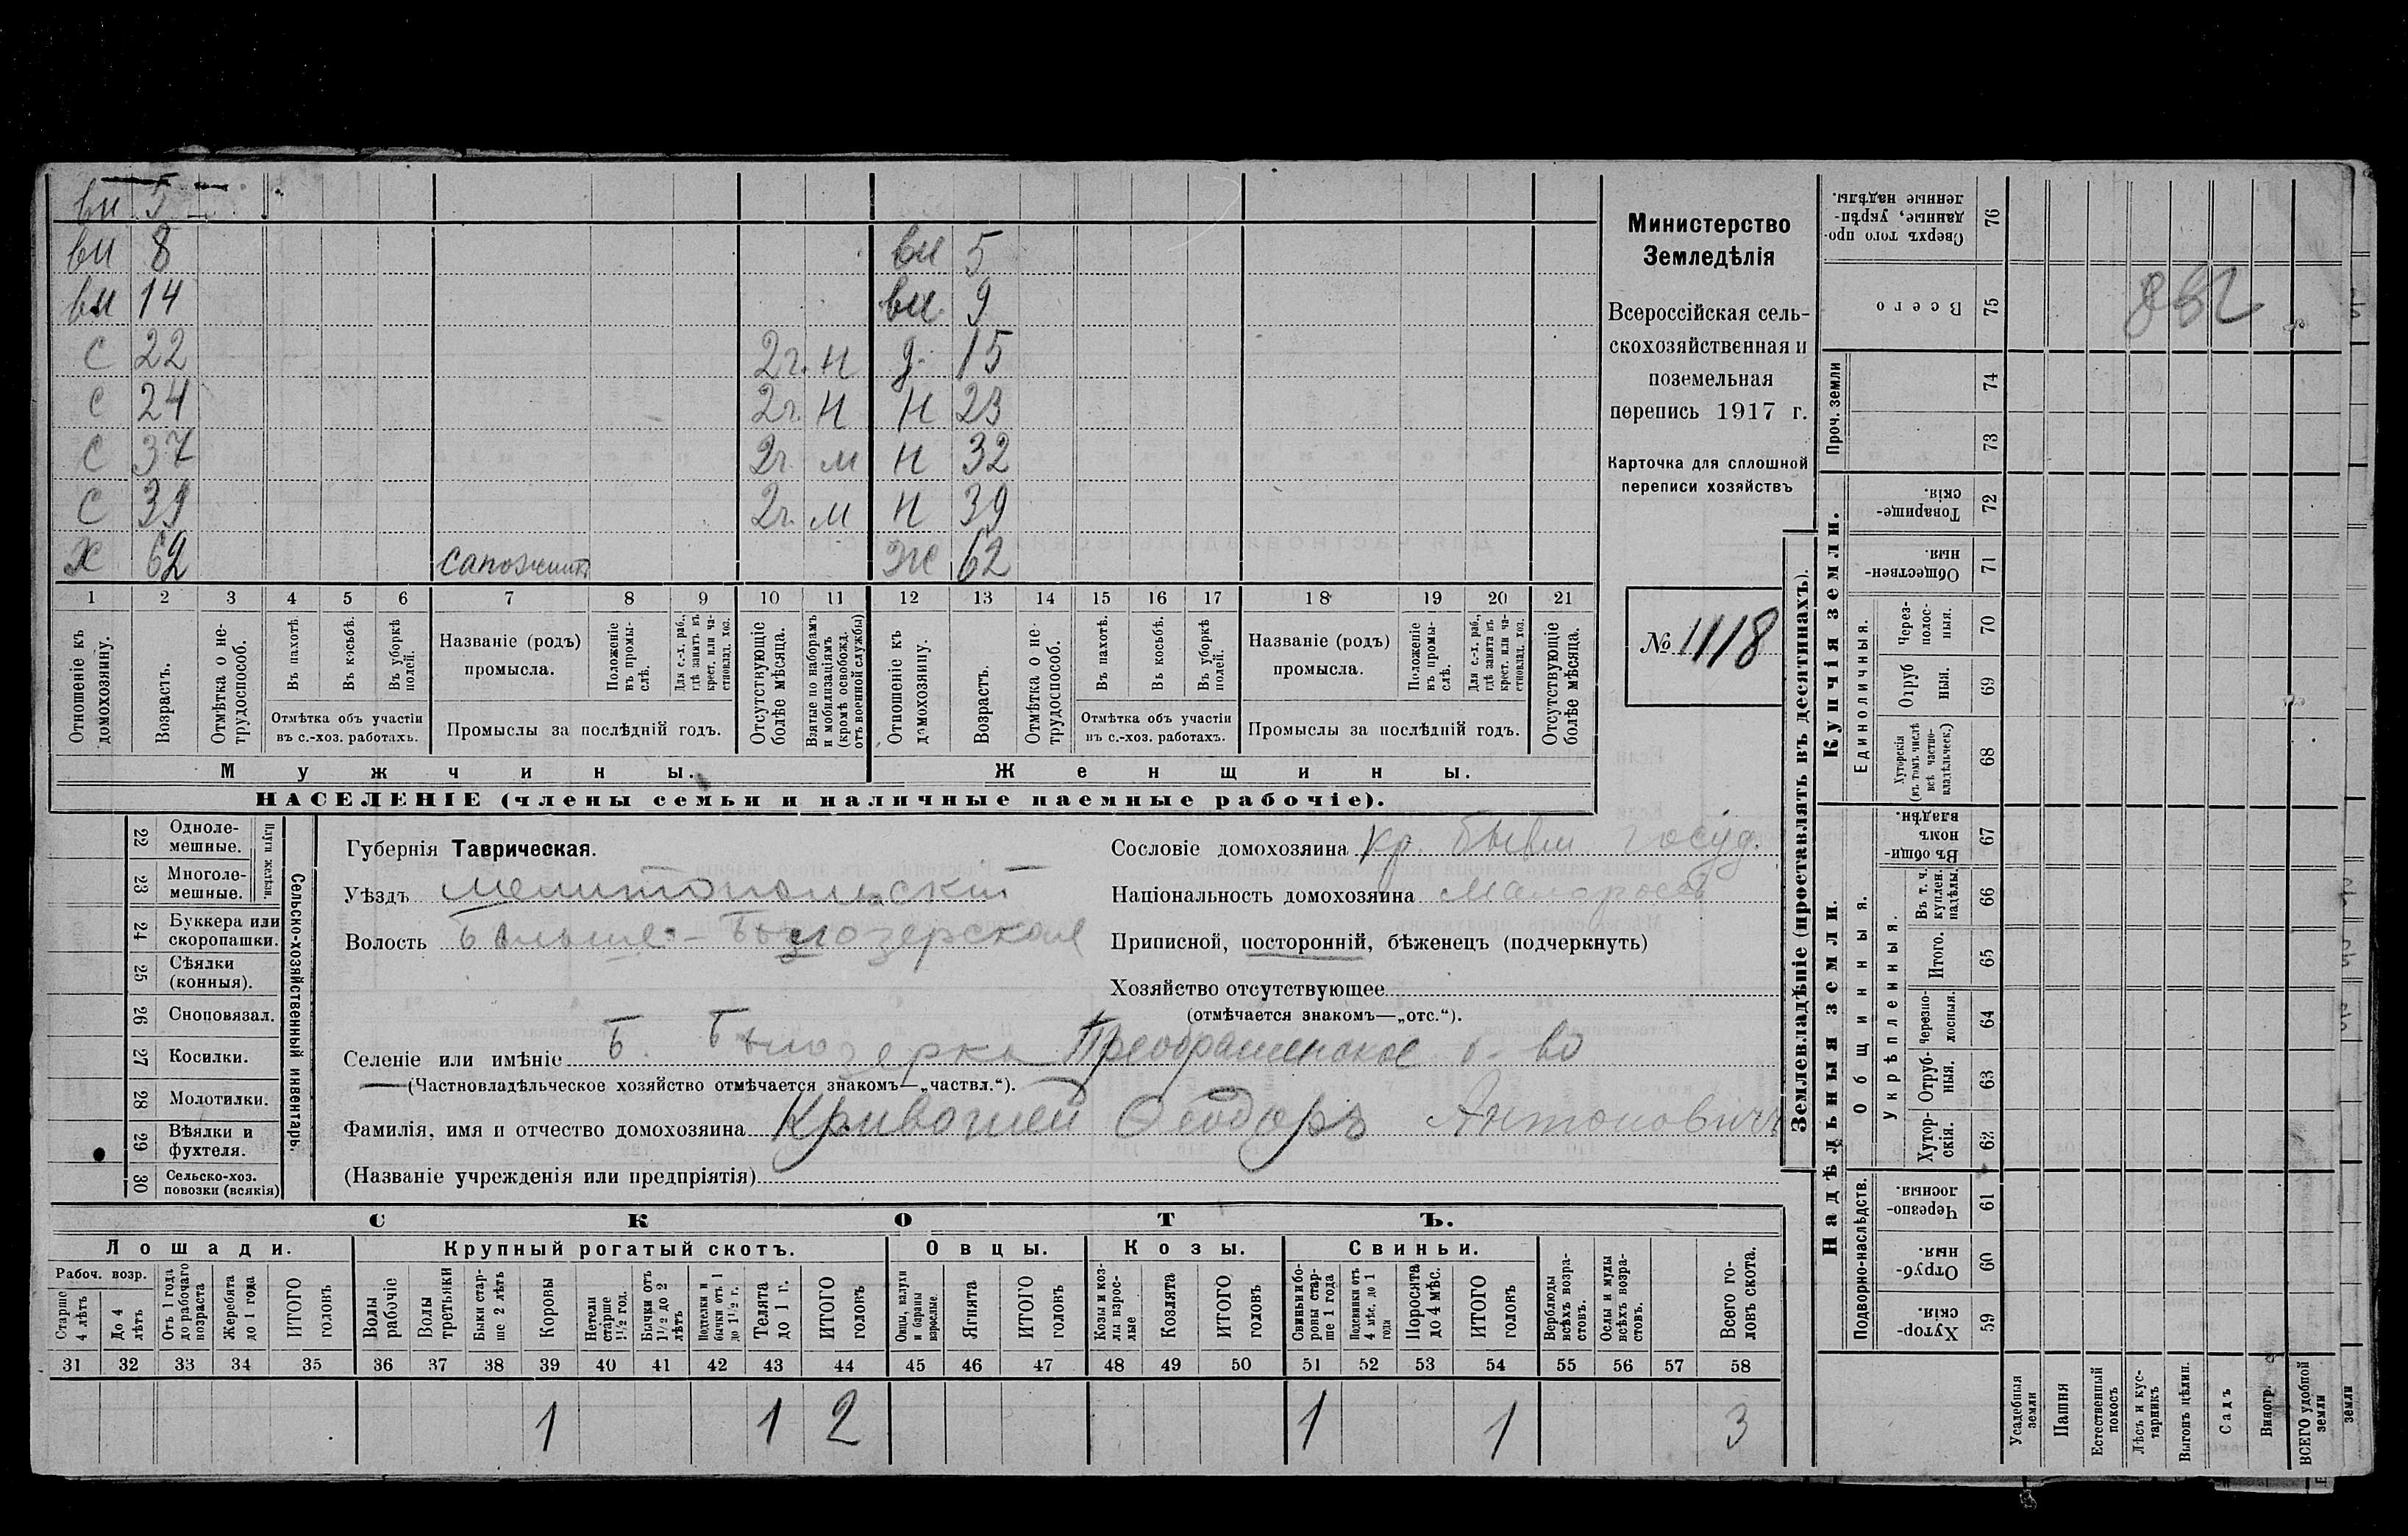 вн 5
вн 8 вн 5
вн 14 вн 9
С 22 2г. н д. 15
С 24 2г. н Н 23
С 37 2г. м Н 32
С 39 2г. м Н 39
Х 62 сапожник Ж 62
1 2 3 4 5 6 7 8 9 10 11 12 13 14 15 16 17 18 19 20 21
Отношеніе къ домохозяину.
Возрастъ.
Отмѣтка о нетрудоспособ.
Въ пахотѣ.
Въ косьбѣ.
Въ уборкѣ полей.
Отмѣтка объ участіи
въ с.-хоз. работахъ.
Названіе (родъ)
промысла.
Положеніе въ промыслѣ.
Для с.-х. раб., гдѣ занятъ въ крест. или частновлад. хоз.
Промыслы за послѣдній годъ.
Отсутствующіе болѣе мѣсяца.
Взятые по наборамъ и мобилизаціямъ (кромѣ освобожд. отъ военной службы)
Отношеніе къ домохозяину.
Возрастъ.
Отмѣтка о нетрудоспособ.
Въ пахотѣ.
Въ косьбѣ.
Въ уборкѣ полей.
Отмѣтка объ участіи
въ с.-хоз. работахъ.
Названіе (родъ)
промысла.
Положеніе въ промыслѣ.
Для с.-х. раб., гдѣ занята въ крест. или частновлад. хоз.
Промыслы за послѣдній годъ.
Отсутствующіе болѣе мѣсяца.
Мужчины. Женщины.
НАСЕЛЕНІЕ (члены семьи и наличные наемные рабочіе).
Министерство
Земледѣлія
Всероссійская сель-
скохозяйственная и
поземельная
перепись 1917 г.
Карточка для сплошной
переписи хозяйствъ
№ 1118
22 Одноле-
мешные.
23 Многоле-
мешные.
Плуги желѣзн.
24 Буккера или
скоропашки.
25 Сѣялки
(конныя).
26 Сноповязал.
27 Косилки.
28 Молотилки.
29 Вѣялки и
фухтеля.
30 Сельско-хоз.
повозки (всякія)
Сельско-хозяйственный инвентарь.
Губернія Таврическая.
Уѣздъ Мелитопольскій
Волость Больше-Бѣлозерская
Сословіе домохозяина кр. бывш. госуд.
Національность домохозяина Малороссъ
Приписной, посторонній, бѣженецъ (подчеркнуть)
Хозяйство отсутствующее
(отмѣчается знакомъ—„отс.“).
Селеніе или имѣніе Б. Бѣлозерка Преображенское о-во
(Частновладѣльческое хозяйство отмѣчается знакомъ—„частвл.“).
Фамилія, имя и отчество домохозяина Кривошей Феодоръ Антоновичъ
(Названіе учрежденія или предпріятія)
СКОТЪ.
Лошади. Крупный рогатый скотъ. Овцы. Козы. Свиньи.
Рабоч. возр.
Старше 4 лѣтъ
До 4 лѣтъ
Отъ 1 года до рабочаго возраста
Жеребята до 1 года
ИТОГО головъ
Волы рабочіе
Волы третьяки
Быки старше 2 лѣтъ
Коровы
Нетели старше 1½ год.
Бычки отъ 1½ до 2 лѣтъ
Подтелки и бычки отъ 1 до 1½ г.
Телята до 1 г.
ИТОГО головъ
Овцы, валухи и бараны взрослые.
Ягнята
ИТОГО головъ
Козы и козлы взрослые
Козлята
ИТОГО головъ
Свиньи и боровы старше 1 года
Подсвинки отъ 4 мѣс. до 1 года
Поросята до 4 мѣс.
ИТОГО головъ
Верблюды всѣхъ возрастовъ.
Ослы и мулы всѣхъ возрастовъ.
Всего головъ скота.
31 32 33 34 35 36 37 38 39 40 41 42 43 44 45 46 47 48 49 50 51 52 53 54 55 56 57 58
1 1 2 1 1 3
Землевладѣніе (проставлять въ десятинахъ).
Сверхъ того проданные, укрѣпленные надѣлы. 76
Всего 75
852
Проч. земли 74
73
Купчія земли.
Товарищескія. 72
Общественныя. 71
Единоличныя.
Черезполосныя. 70
Отрубныя. 69
Хуторскія (въ томъ числѣ всѣ частновладѣльческ.) 68
Надѣльныя земли.
Общинныя.
Въ общинномъ владѣн. 67
Укрѣпленныя.
Въ т. ч. куплен. надѣлы. 66
Итого. 65
Черезполосныя. 64
Отрубныя. 63
Хуторскія. 62
Подворно-наслѣдств.
Черезполосныя. 61
Отрубныя. 60
Хуторскія. 59
Усадебныя земли
Пашня
Естественный покосъ
Лѣсъ и кустарникъ
Выгонъ цѣлин.
Садъ
Виногр.
ВСЕГО удобной земли
земли